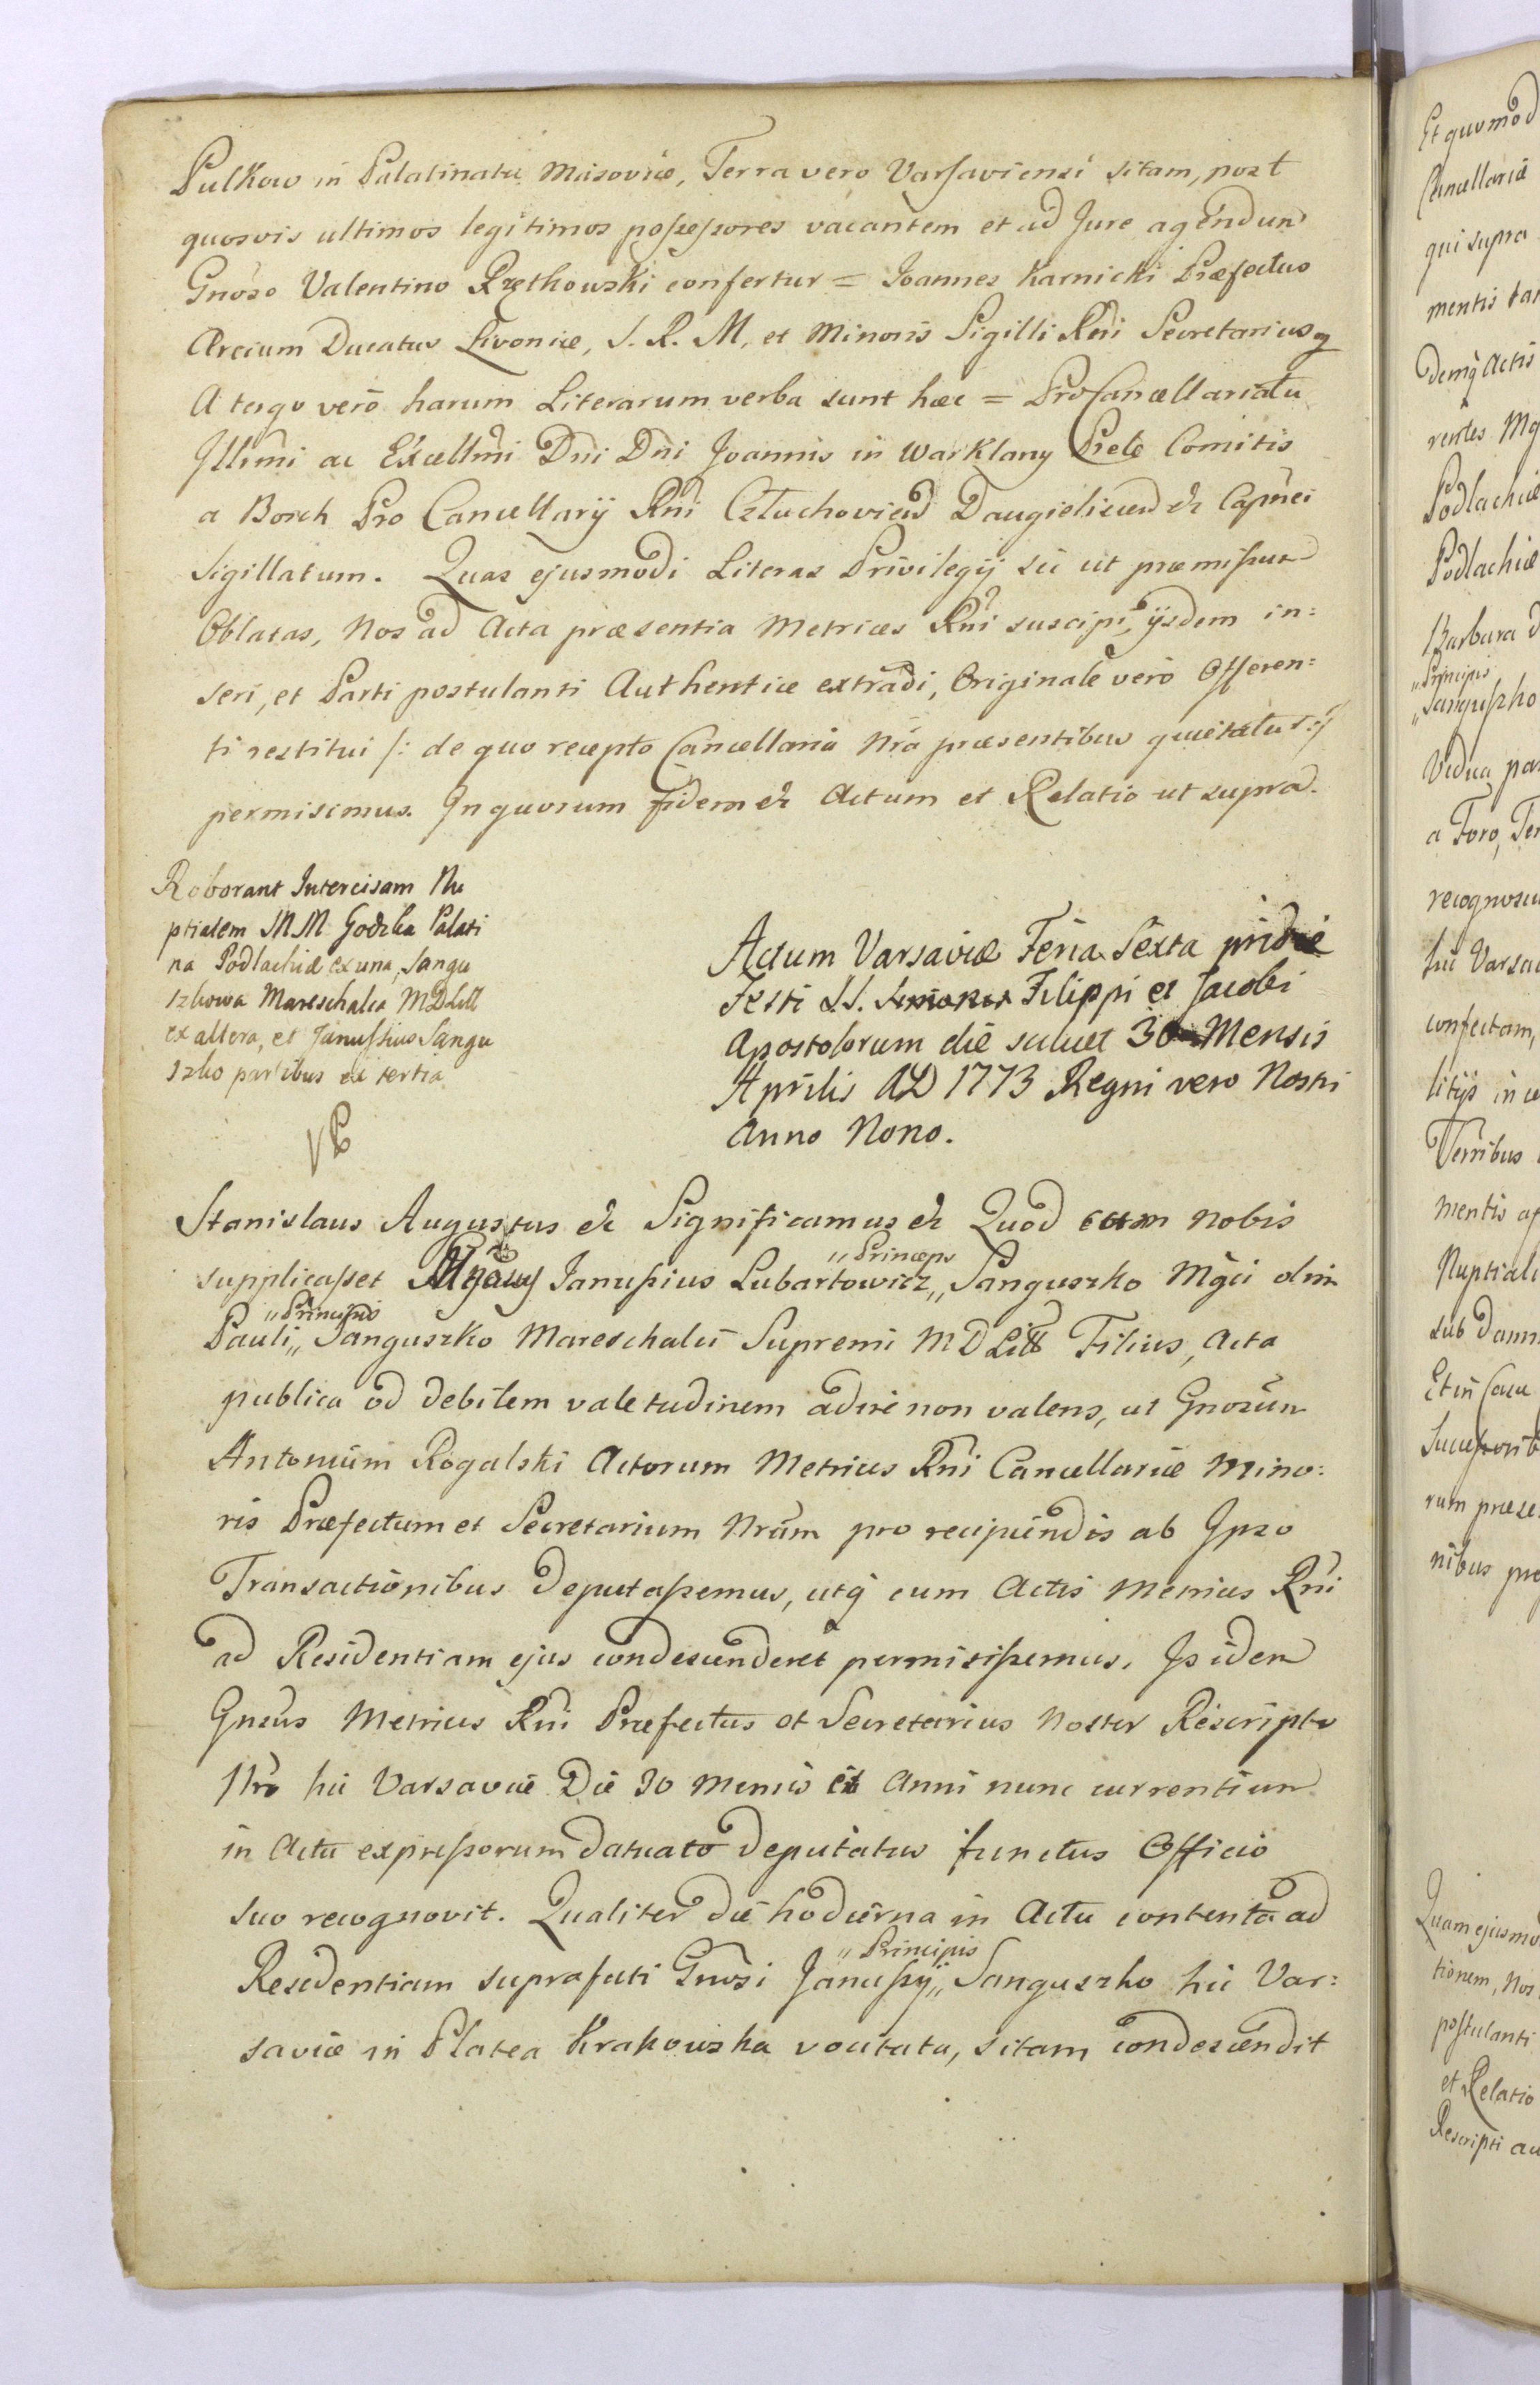 Pulkow in Palatinatu Masoviæ, Terra vero Varsaviensi sitam, post
quosvis ultimos legitimos possessores vacantem et ad Jure agendum
Gnoso Valentino Rzętkowski confertur = Joannes Karnicki Præfectus
Arcium Ducatus Livoniæ, S. R. M. et Minoris Sigilli Rni Secretarius
A tergo verō harum Literarum verba sunt hæc = ProCancellariatu
Illmi ac Excellmi Dni Dni Joannis in Warklany Prele Comitis
a Borch Pro Cancellarij Rni Człuchovien Daugielicen &c Capnei
Sigillatum. Quas ejusmodi Literas Privilegij sic ut præmissum
Oblatas, Nos ad Acta præsentia Metrices Rni suscipi, ijsdem in:
seri, et Parti postulanti Authentice extradi, Originale vero Offeren:
ti restitui /: de quo recepto Cancellaria Nra præsentibus quietatur :/
permisimus. In quorum fidem &c Actum et Relatio ut supra.
Roborant Intercisam Nu
ptialem MM Godzka Palati
na Podlachiæ ex una, Sangu
szkowa Mareschalca MDLitt
ex altera, et Janussius Sangu
szko partibus ex tertia
Actum Varsaviæ Feria Sexta pridie
Festi S.S. Filippi et Jacobi
Apostolorum die scilicet 30 Mensis
Aprilis AD 1773 Regni vero Nostri
Anno Nono.
Stanislaus Augustus &c Significamus &c Quod cum nobis
"Princeps
supplicasset Janussius Lubartowicz,, Sanguszko Mgci olim
"Principis
Pauli,, Sanguszko Mareschalci Supremi MDLitt Filius, Acta
publica ob debilem valetudinem adire non valens, ut Gnosum
Antonium Rogalski Actorum Metrices Rni Cancellariæ Mino:
ris Præfectum et Secretarium Nrum pro recipiendis ab Ipso
Transactionibus deputassemus, utq cum Actis Metrices Rni
ad Residentiam ejus condescenderet permisissemus. Is idem
Gnsus Metrices Rni Præfectus et Secretarius Noster Rescripto
Nro hic Varsaviæ Die 30 Mensis et Anni nunc currentium
in Actu expressorum datuato deputatus functus Officio
suo recognovit. Qualiter die hodierna in Actu contenta ad
"Principis
Residentiam suprafati Gnosi Janussij,, Sanguszko hic Var:
saviæ in Platea Krakowska vocitata, sitam condescendit
Et quomod
Cancellariæ
qui supra
mentis
demq Actis
rentes
Podlachiæ
Podlachiæ
Barbara
"Principis
"Sanguszko
Vidua
a Foro,
recognoscu
hic Varsa
confectam,
litijs in
mentis
Nuptiali
sub
Et in
rum
nibus
Quam ejusmo
tionem, Nos
postulanti
et Relatio
Rescripti